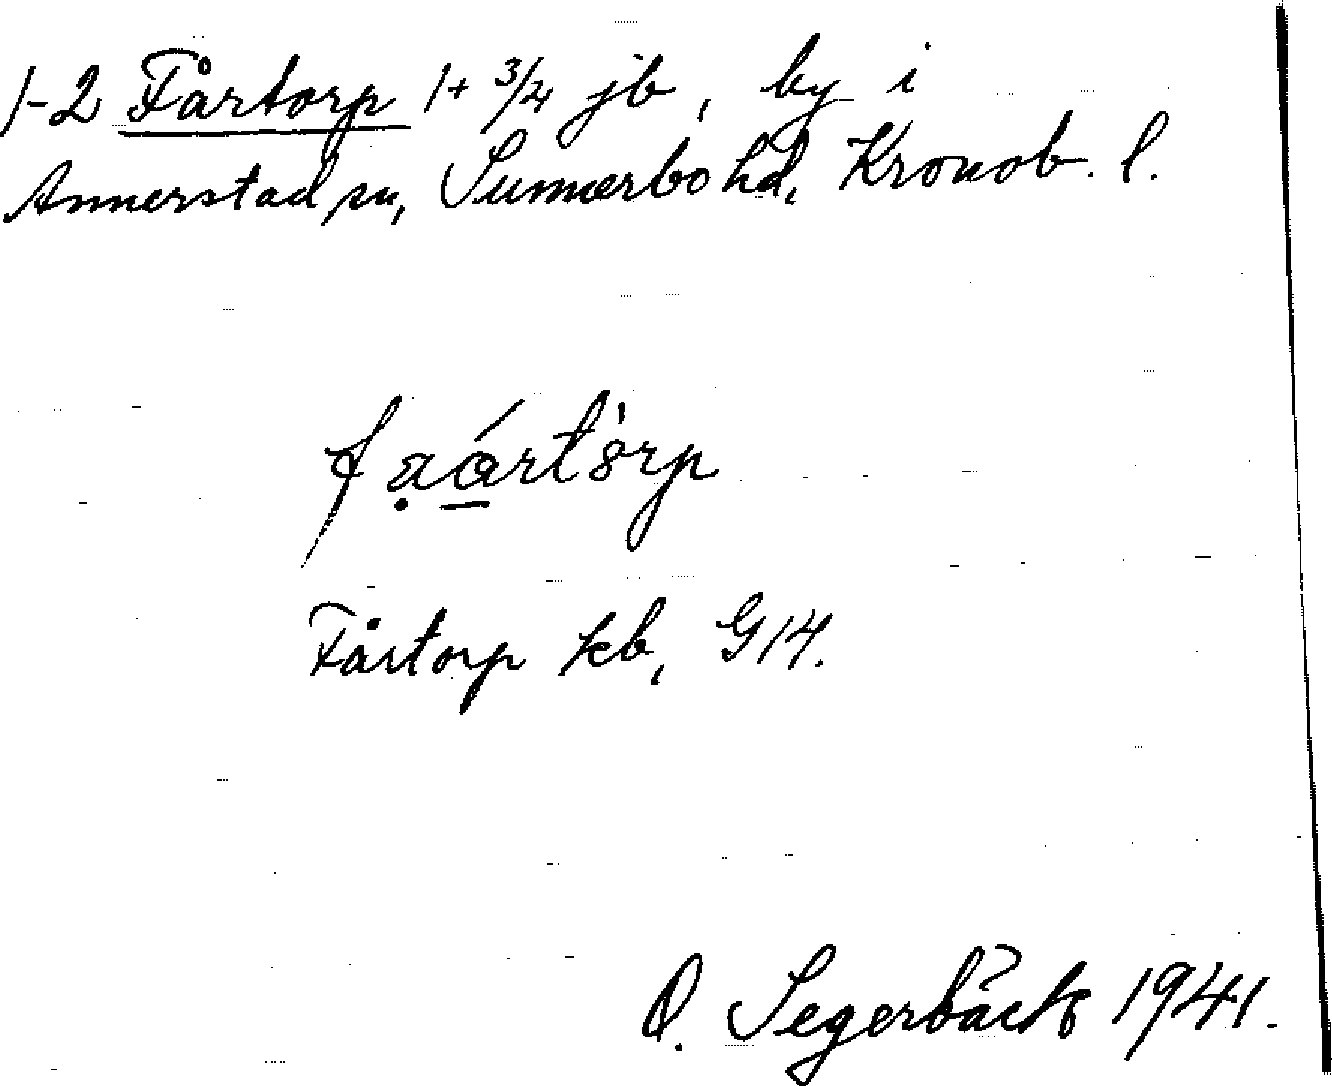 1-2 Fårtorp 1 + 3/4 jb, by i
Annerstad sn, Sunnerbo hd, Kronob. l.
Fårtorp kb, G14.
O. Segerbäck 1941.